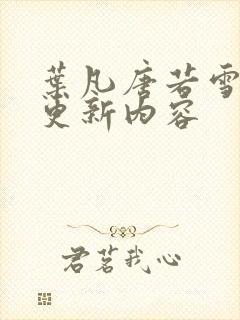 葉凡唐若雪
更新內容
君茗我心